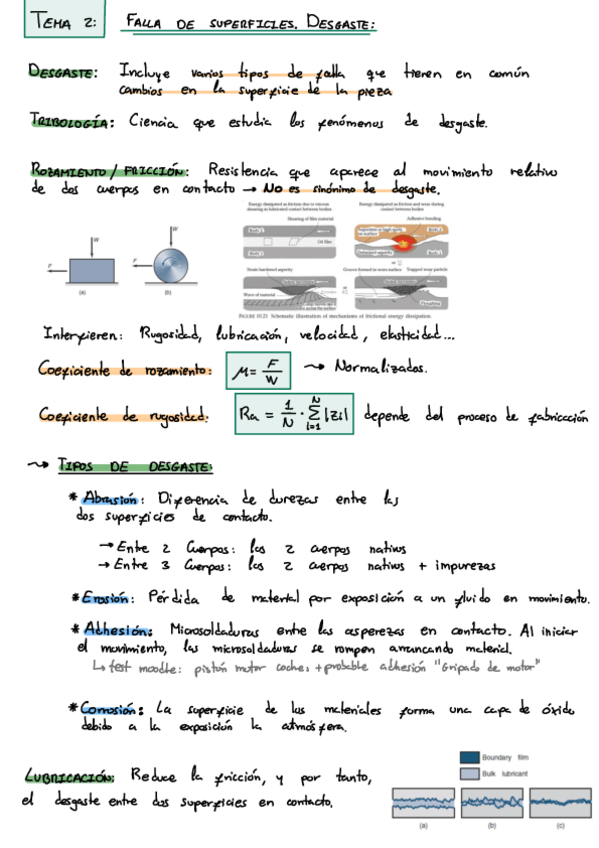 TEMA 2: FALLA DE SUPERFICIES. DESGASTE:
DESGASTE: Incluye varios tipos de falla que tienen en común
cambios en la superficie de la pieza
TRIBOLOGÍA: Ciencia que estudia los fenómenos de desgaste.
ROZAMIENTO / FRICCIÓN: Resistencia que aparece al movimiento relativo
de dos cuerpos en contacto → No es sinónimo de desgaste.
Energy dissipated as friction due to viscous
shearing in lubricated contact between bodies
Energy dissipated as friction and wear during
contact between bodies
Shearing of film material
Adhesive bonding
Body 1
Oil film
Body 2
Body 1
Body 2
W
F
(a)
W
F
(b)
Strain hardened asperity
Groove formed in worn surface
Trapped wear particle
Wave of material
FIGURE 10.23 Schematic illustration of mechanisms of frictional energy dissipation.
Interfieren: Rugosidad, lubricación, velocidad, elasticidad...
Coeficiente de rozamiento: μ = F/W → Normalizados.
Coeficiente de rugosidad: Ra = 1/N · Σ i=1 N |zi| depende del proceso de fabricación
→ TIPOS DE DESGASTE:
* Abrasión: Diferencia de durezas entre las
dos superficies de contacto.
→ Entre 2 Cuerpos: los 2 cuerpos nativos
→ Entre 3 Cuerpos: los 2 cuerpos nativos + impurezas
* Erosión: Pérdida de material por exposición a un fluido en movimiento.
* Adhesión: Microsoldaduras entre las asperezas en contacto. Al iniciar
el movimiento, las microsoldaduras se rompen arrancando material.
↳ test moodle: pistón motor coche: + probable adhesión "Gripado de motor"
* Corrosión: La superficie de los materiales forma una capa de óxido
debido a la exposición la atmósfera.
Boundary film
Bulk lubricant
LUBRICACIÓN: Reduce la fricción, y por tanto,
el desgaste entre dos superficies en contacto.
(a) (b) (c)